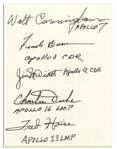 Walt Cunningham
APOLLO 7
Frank Borman
Apollo 8 CDR
Jim McDivitt Apollo 9 CDR
Charlie Duke
APOLLO 16 LMP
Fred Haise
APOLLO 13 LMP